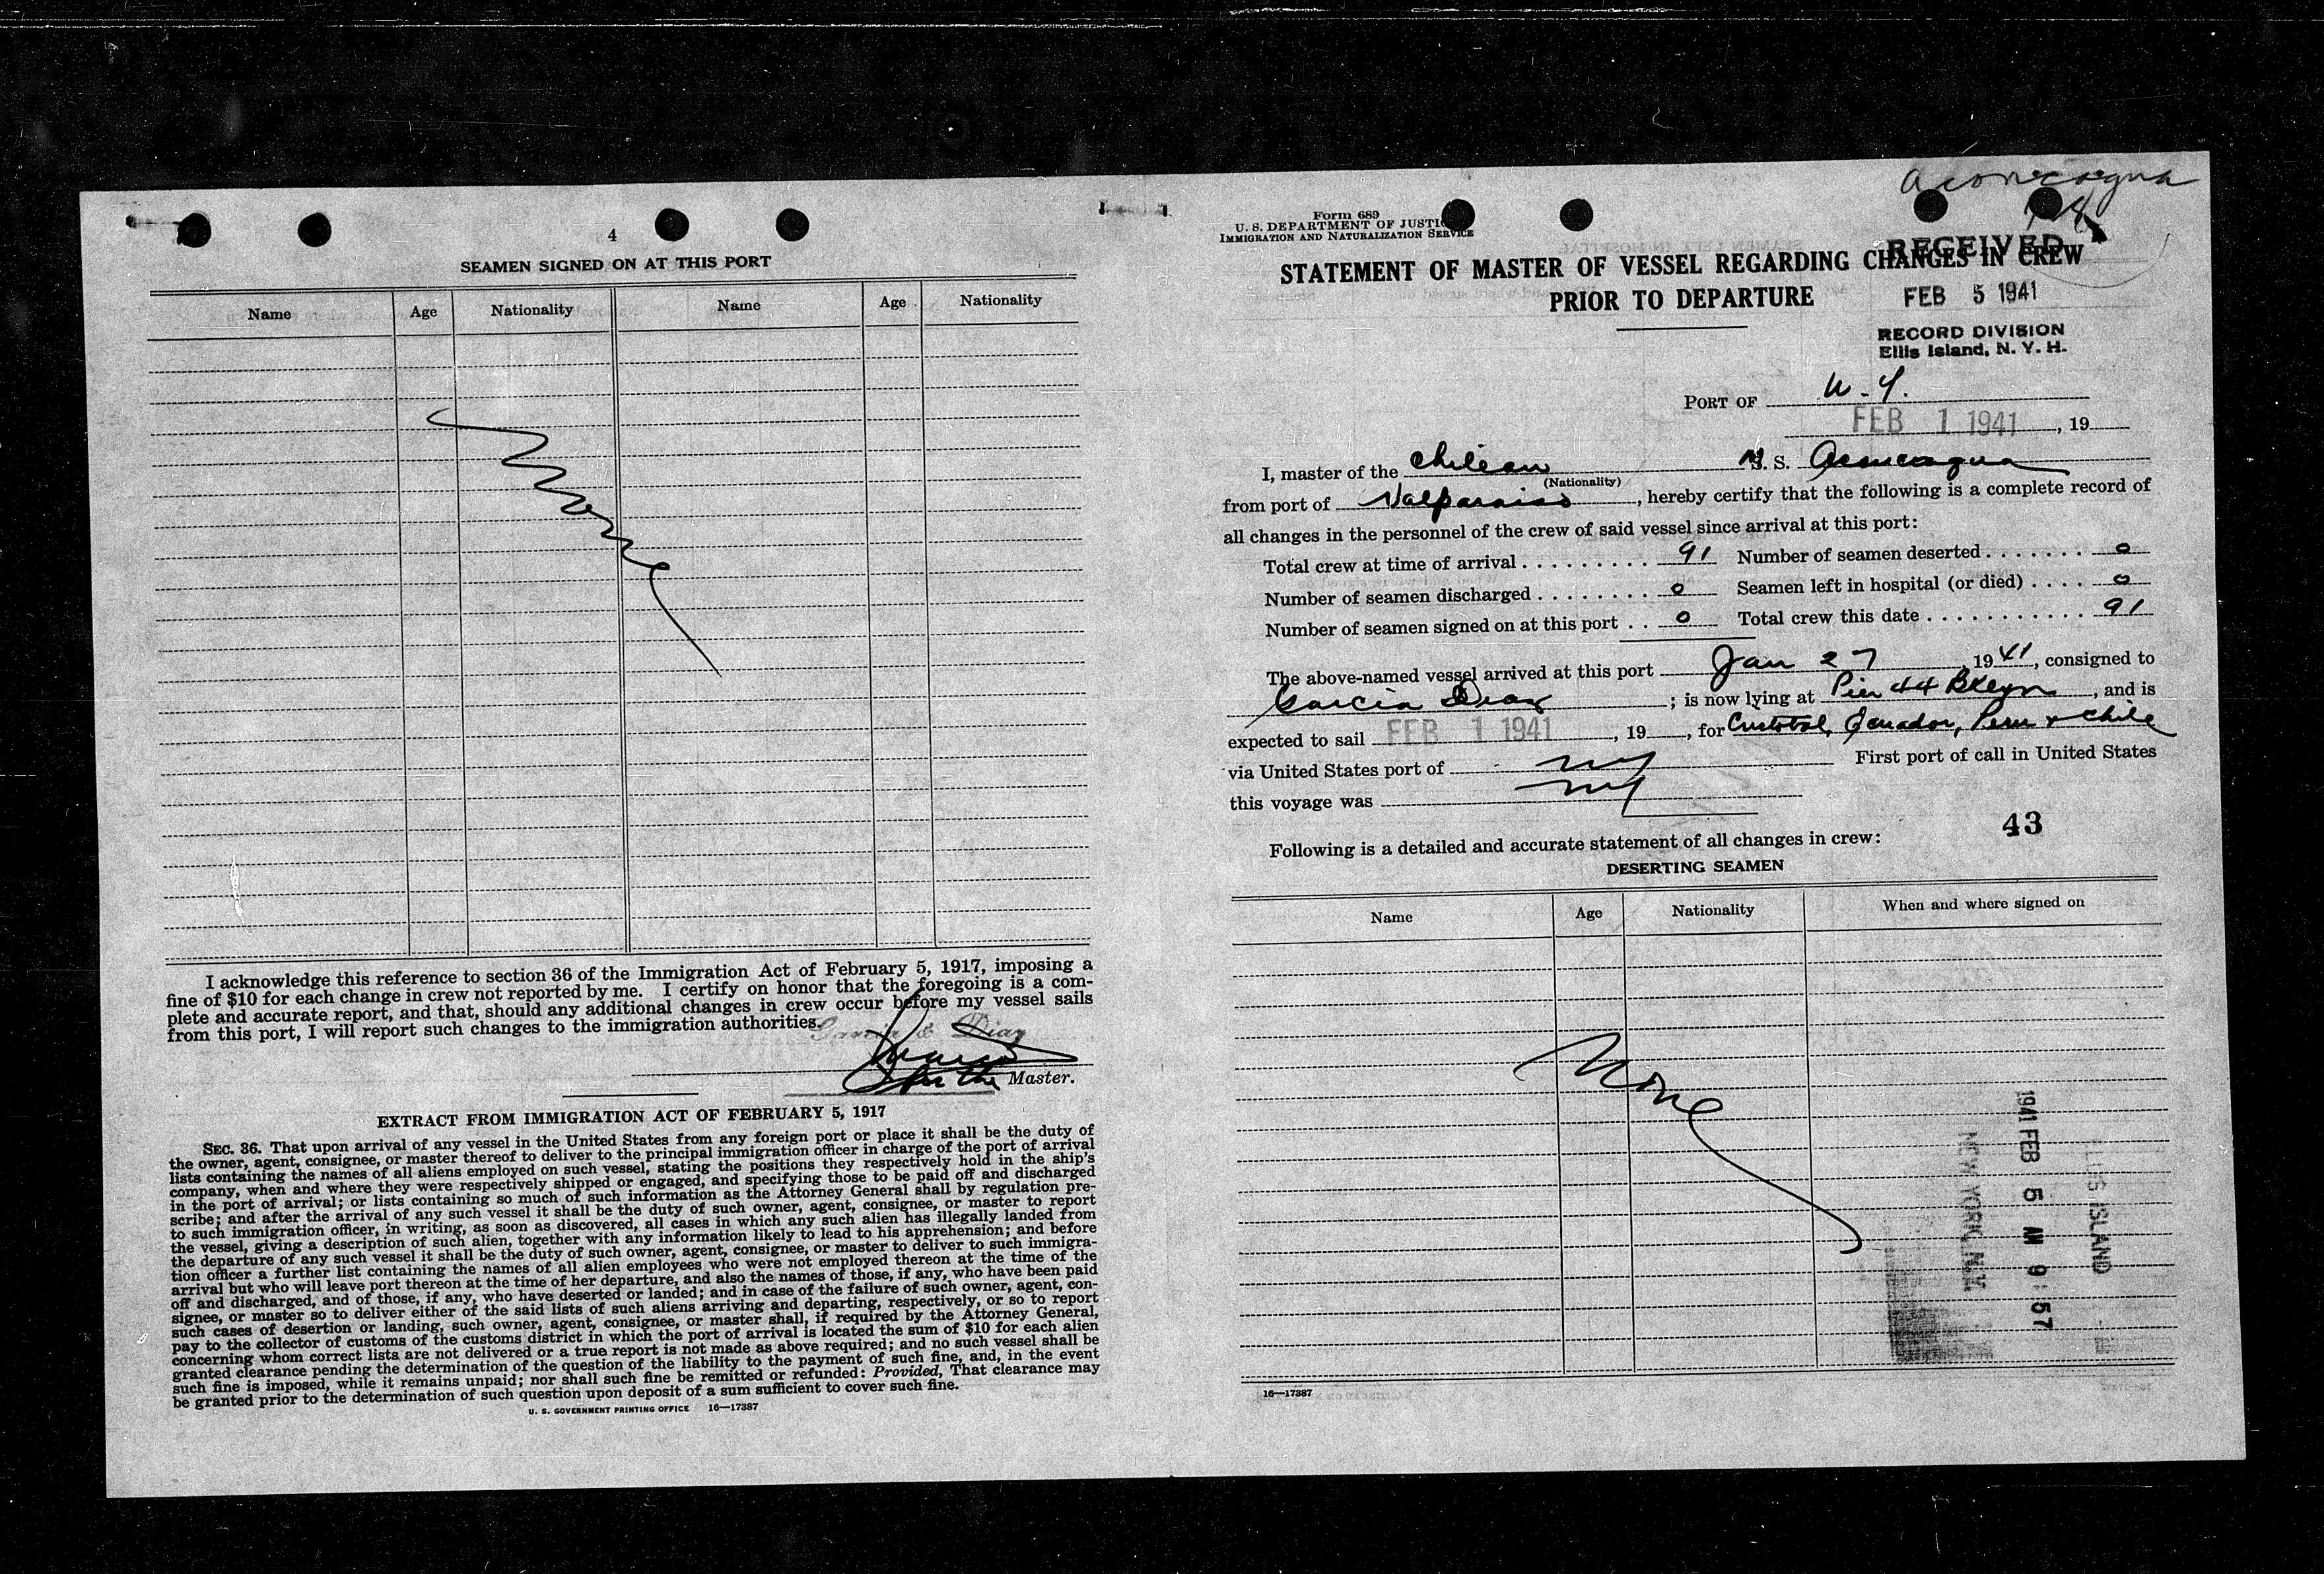 4
SEAMEN SIGNED ON AT THIS PORT
Name Age Nationality Name Age Nationality
None
I acknowledge this reference to section 36 of the Immigration Act of February 5, 1917, imposing a
fine of $10 for each change in crew not reported by me. I certify on honor that the foregoing is a com-
plete and accurate report, and that, should any additional changes in crew occur before my vessel sails
from this port, I will report such changes to the immigration authorities.
Garcia & Diaz
for the Master.
EXTRACT FROM IMMIGRATION ACT OF FEBRUARY 5, 1917
SEC. 36. That upon arrival of any vessel in the United States from any foreign port or place it shall be the duty of
the owner, agent, consignee, or master thereof to deliver to the principal immigration officer in charge of the port of arrival
lists containing the names of all aliens employed on such vessel, stating the positions they respectively hold in the ship's
company, when and where they were respectively shipped or engaged, and specifying those to be paid off and discharged
in the port of arrival; or lists containing so much of such information as the Attorney General shall by regulation pre-
scribe; and after the arrival of any such vessel it shall be the duty of such owner, agent, consignee, or master to report
to such immigration officer, in writing, as soon as discovered, all cases in which any such alien has illegally landed from
the vessel, giving a description of such alien, together with any information likely to lead to his apprehension; and before
the departure of any such vessel it shall be the duty of such owner, agent, consignee, or master to deliver to such immigra-
tion officer a further list containing the names of all alien employees who were not employed thereon at the time of the
arrival but who will leave port thereon at the time of her departure, and also the names of those, if any, who have been paid
off and discharged, and of those, if any, who have deserted or landed; and in case of the failure of such owner, agent, con-
signee, or master so to deliver either of the said lists of such aliens arriving and departing, respectively, or so to report
such cases of desertion or landing, such owner, agent, consignee, or master shall, if required by the Attorney General,
pay to the collector of customs of the customs district in which the port of arrival is located the sum of $10 for each alien
concerning whom correct lists are not delivered or a true report is not made as above required; and no such vessel shall be
granted clearance pending the determination of the question of the liability to the payment of such fine, and, in the event
such fine is imposed, while it remains unpaid; nor shall such fine be remitted or refunded: Provided, That clearance may
be granted prior to the determination of such question upon deposit of a sum sufficient to cover such fine.
U. S. GOVERNMENT PRINTING OFFICE 16—17387
Aconcagua
Form 689
U. S. DEPARTMENT OF JUSTICE
IMMIGRATION AND NATURALIZATION SERVICE
RECEIVED
STATEMENT OF MASTER OF VESSEL REGARDING CHANGES IN CREW
PRIOR TO DEPARTURE
FEB 5 1941
RECORD DIVISION
Ellis Island, N. Y. H.
PORT OF N.Y.
FEB 1 1941, 19
I, master of the Chilean M. S. Aconcagua
(Nationality)
from port of Valparaiso, hereby certify that the following is a complete record of
all changes in the personnel of the crew of said vessel since arrival at this port:
Total crew at time of arrival . . . . . . . . . 91 Number of seamen deserted . . . . . . . 0
Number of seamen discharged . . . . . . . . 0 Seamen left in hospital (or died) . . . . 0
Number of seamen signed on at this port . . 0 Total crew this date . . . . . . . . . . . 91
The above-named vessel arrived at this port Jan 27, 1941, consigned to
Garcia Diaz; is now lying at Pier 44 Bklyn, and is
expected to sail FEB 1 1941, 19, for Cristobal, Ecuador, Peru & Chile
via United States port of NY First port of call in United States
this voyage was NY
43
Following is a detailed and accurate statement of all changes in crew:
DESERTING SEAMEN
Name Age Nationality When and where signed on
None
ELLIS ISLAND
1941 FEB 5 AM 9 57
NEW YORK, N.Y.
16—17387